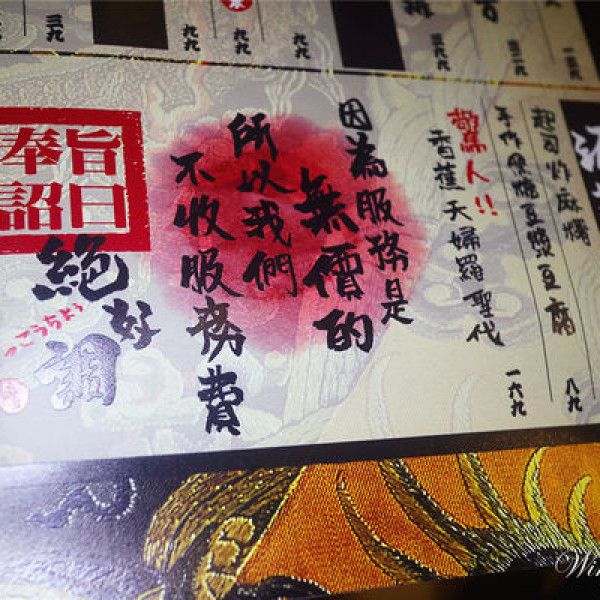 起司炸麻糬
八九
手作黑糖豆漿豆腐
驚人!!
香蕉天婦羅聖代
一六九
因為服務是
無價的
所以我們
不收服務費
旨日
奉詔
絕好調
っこうちょう
三九
九九
九九
三六九
三二九
Win